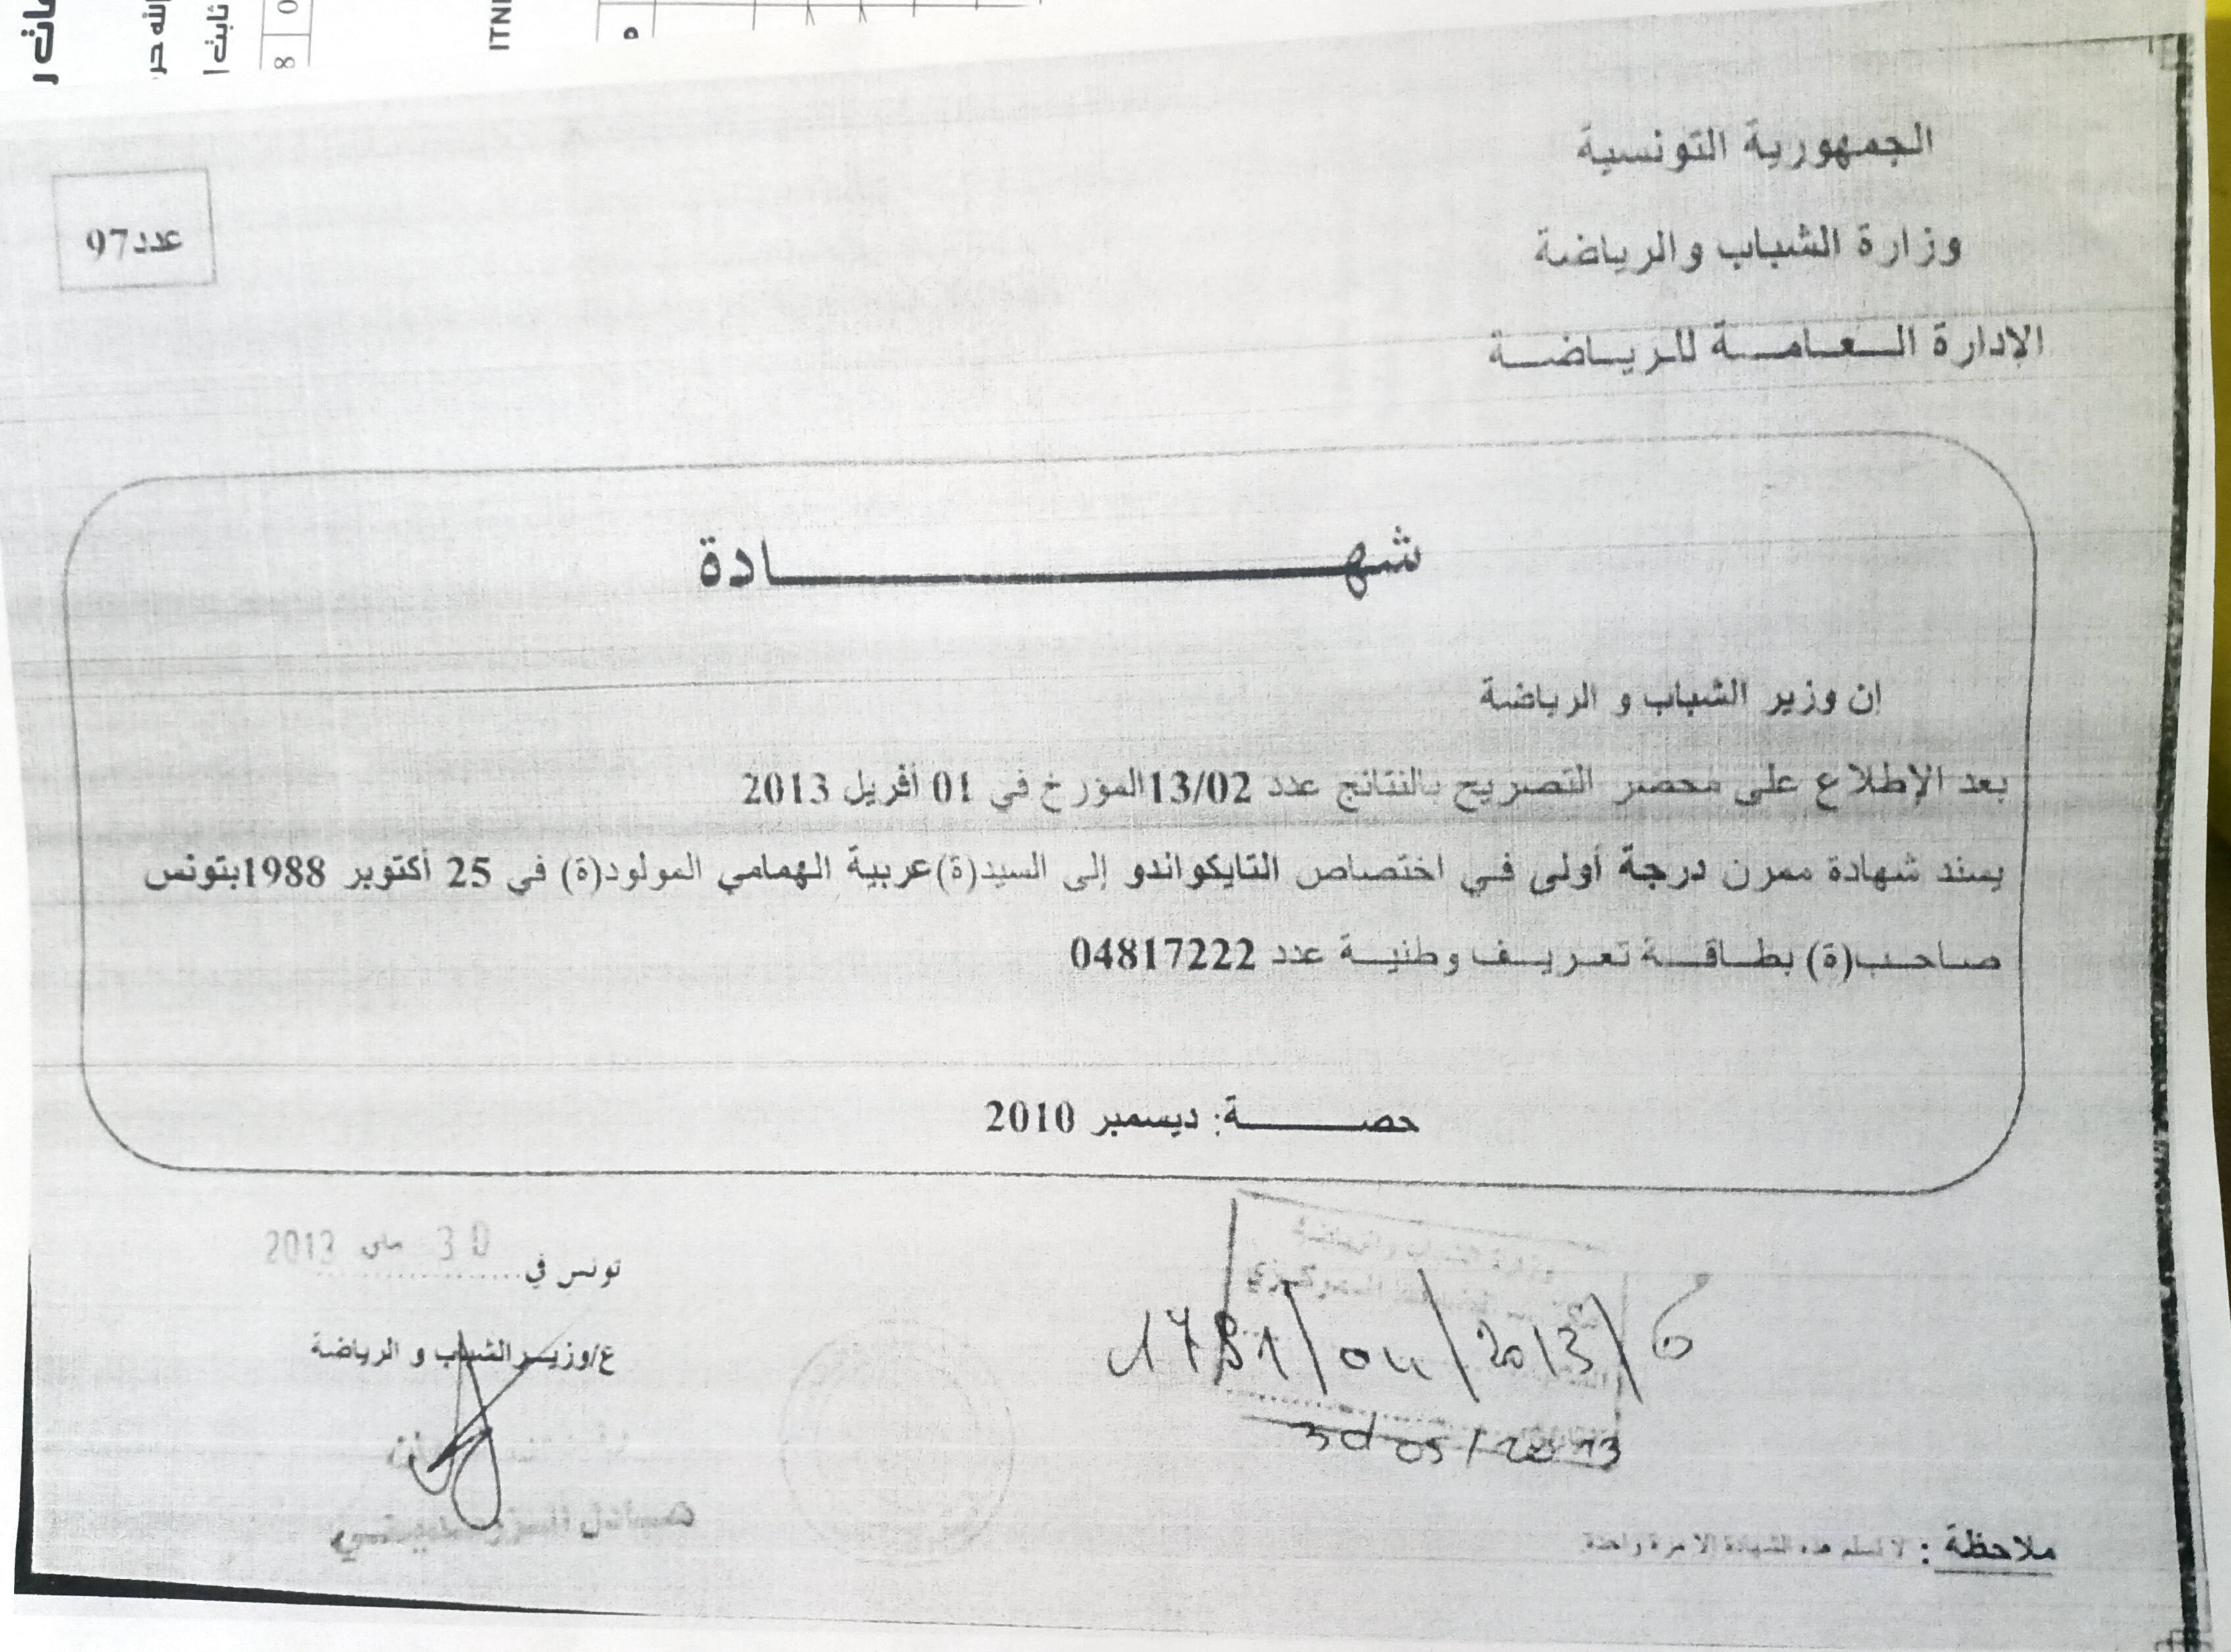 الجمهورية التونسية
وزارة الشباب والرياضة
الإدارة العامة للرياضة
عدد97
شهادة
إن وزير الشباب و الرياضة
بعد الإطلاع على محضر التصريح بالنتائج عدد 13/02المؤرخ في 01 أفريل 2013
يسند شهادة ممرن درجة أولى في اختصاص التايكواندو إلى السيد(ة)عربية الهمامي المولود(ة) في 25 أكتوبر 1988بتونس
صاحب(ة) بطاقة تعريف وطنية عدد 04817222
حصة: ديسمبر 2010
تونس في 30 ماي 2013
ع/وزير الشباب و الرياضة
وزارة الشباب والرياضة
المركزي
1781/04/2013/
30/05/2013
ملاحظة : لا تسلم هذه الشهادة إلا مرة واحدة
ثابت
8 0
ITNI